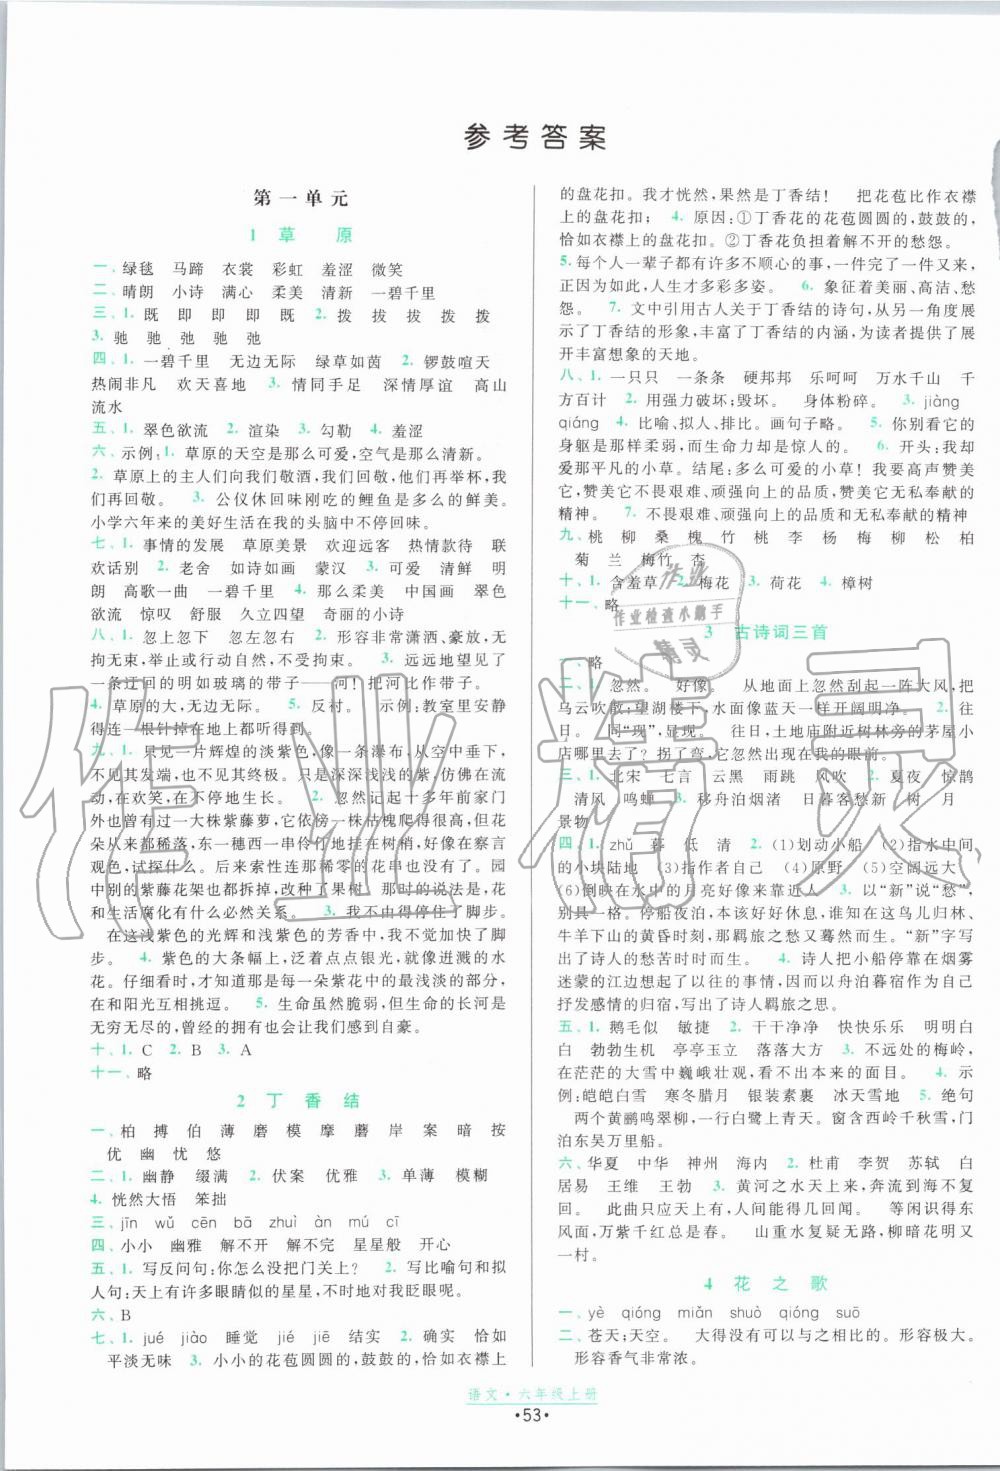 参考答案
第一单元
1 草 原
一、绿毯 马蹄 衣裳 彩虹 羞涩 微笑
二、晴朗 小诗 满心 柔美 清新 一碧千里
三、1. 既 即 即 即 既 2. 拨 拔 拔 拨 拨
3. 驰 弛 驰 弛
四、1. 一碧千里 无边无际 绿草如茵 2. 锣鼓喧天
热闹非凡 欢天喜地 3. 情同手足 深情厚谊 高山
流水
五、1. 翠色欲流 2. 渲染 3. 勾勒 4. 羞涩
六、示例:1. 草原的天空是那么可爱,空气是那么清新。
2. 草原上的主人们向我们敬酒,我们回敬,他们再举杯,我
们再回敬。 3. 公仪休回味刚吃的鲤鱼是多么的鲜美。
小学六年来的美好生活在我的头脑中不停回味。
七、1. 事情的发展 草原美景 欢迎远客 热情款待 联
欢话别 2. 老舍 如诗如画 蒙汉 3. 可爱 清鲜 明
朗 高歌一曲 一碧千里 4. 那么柔美 中国画 翠色
欲流 惊叹 舒服 久立四望 奇丽的小诗
八、1. 忽上忽下 忽左忽右 2. 形容非常潇洒、豪放,无
拘无束,举行或行动自然,不受拘束。 3. 远远地望见了
一条迂回的明如玻璃的带子——河! 把河比作带子。
4. 草原的大,无边无际。 5. 反衬。 示例:教室里安静
得连一根针掉在地上都听得到。
九、1. 只见一片辉煌的淡紫色,像一条瀑布,从空中垂下,
不见其发端,也不见其终极。只是深深浅浅的紫,仿佛在流
动,在欢笑,在不停地生长。 2. 忽然记起十多年前家门
外也曾有过一大株紫藤萝,它依傍一株枯槐爬得很高,但花
朵从来都稀落,东一穗西一串伶仃地挂在树梢,好像在察言
观色,试探什么。后来索性连那稀零的花串也没有了。园
中别的紫藤花架也都拆掉,改种了果树。那时的说法是,花
和生活腐化有什么必然关系。 3. 我不由得停住了脚步。
在这浅紫色的光辉和浅紫色的芳香中,我不觉加快了脚
步。 4. 紫色的大条幅上,泛着点点银光,就像迸溅的水
花。仔细看时,才知道那是每一朵紫花中的最浅淡的部分,
在和阳光互相挑逗。 5. 生命虽然脆弱,但生命的长河是
无穷无尽的,曾经的拥有也会让我们感到自豪。
十、1. C 2. B 3. A
十一、略
2 丁 香 结
一、柏 搏 伯 薄 磨 模 摩 蘑 岸 案 暗 按
优 幽 忧 悠
二、1. 幽静 缀满 2. 伏案 优雅 3. 单薄 模糊
4. 恍然大悟 笨拙
三、jīn wǔ cēn bā zhuì àn mú cī
四、小小 幽雅 解不开 解不完 星星般 开心
五、1. 写反问句:你怎么没把门关上? 2. 写比喻句和拟
人句:天上有许多眼睛似的星星,不时地对我们眨眼。
六、B
七、1. jué jiào 睡觉 jié jiē 结实 2. 确实 恰如
平淡无味 3. 小小的花苞圆圆的,鼓鼓的,恰如衣襟上
的盘花扣。我才恍然,果然是丁香结! 把花苞比作衣襟
上的盘花扣; 4. 原因:①丁香花的花苞圆圆的,鼓鼓的,
恰如衣襟上的盘花扣。②丁香花负担着解不开的愁怨。
5. 每个人一辈子都有许多不顺心的事,一件完了一件又来,
正因为如此,人生才多彩多姿。 6. 象征着美丽、高洁、愁
怨。 7. 文中引用古人关于丁香结的诗句,从另一角度展
示了丁香结的形象,丰富了丁香结的内涵,为读者提供了展
开丰富想象的天地。
八、1. 一只只 一条条 硬邦邦 乐呵呵 万水千山 千
方百计 2. 用强力破坏;毁坏。 身体粉碎。 3. jiàng
qiáng 4. 比喻、拟人、排比。画句子略。 5. 你别看它的
身躯是那样柔弱,而生命力却是惊人的。 6. 开头:我却
爱那平凡的小草。结尾:多么可爱的小草!我要高声赞美
它,赞美它不畏艰难、顽强向上的品质,赞美它无私奉献的
精神。 7. 不畏艰难、顽强向上的品质和无私奉献的精神
九、桃 柳 桑 槐 竹 桃 李 杨 梅 柳 松 柏
菊 兰 梅竹 杏
十、1. 含羞草 2. 梅花 3. 荷花 4. 樟树
十一、略
3 古诗词三首
一、略
二、1. 忽然。 好像。 从地面上忽然刮起一阵大风,把
乌云吹散;望湖楼下,水面像蓝天一样开阔明净。 2. 往
日。 同“现”,显现。 往日,土地庙附近树林旁的茅屋小
店哪里去了?拐了弯,它忽然出现在我的眼前。
三、1. 北宋 七言 云黑 雨跳 风吹 2. 夏夜 惊鹊
清风 鸣蝉 3. 移舟泊烟渚 日暮客愁新 树 月
景物
四、1. zhǔ 暮 低 清 2. (1)划动小船 (2)指水中间
的小块陆地 (3)指作者自己 (4)原野 (5)空阔远大
(6)倒映在水中的月亮好像来靠近人 3. 以“新”说“愁”,
别具一格。停船夜泊,本该好好休息,谁知在这鸟儿归林、
牛羊下山的黄昏时刻,那羁旅之愁又蓦然而生。“新”字写
出了诗人的愁苦时时而生。 4. 诗人把小船停靠在烟雾
迷蒙的江边,想起了以往的事情,因而以舟泊暮宿作为自己
抒发感情的归宿,写出了诗人羁旅之思。
五、1. 鹅毛似 敏捷 2. 干干净净 快快乐乐 明明白
白 勃勃生机 亭亭玉立 落落大方 3. 不远处的梅岭,
在茫茫的大雪中巍峨壮观,看不出本来的面目。 4. 示
例:皑皑白雪 寒冬腊月 银装素裹 冰天雪地 5. 绝句
两个黄鹂鸣翠柳,一行白鹭上青天。窗含西岭千秋雪,门
泊东吴万里船。
六、华夏 中华 神州 海内 2. 杜甫 李贺 苏轼 白
居易 王维 王勃 3. 黄河之水天上来,奔流到海不复
回。 此曲只应天上有,人间能得几回闻。 等闲识得东
风面,万紫千红总是春。 山重水复疑无路,柳暗花明又
一村。
4 花 之 歌
一、yè qióng miǎn shuò qióng suō
二、苍天;天空。 大得没有可以与之相比的。形容极大。
形容香气非常浓。
语文·六年级上册
·53·
作业精灵
作业
作业检查小助手
精灵